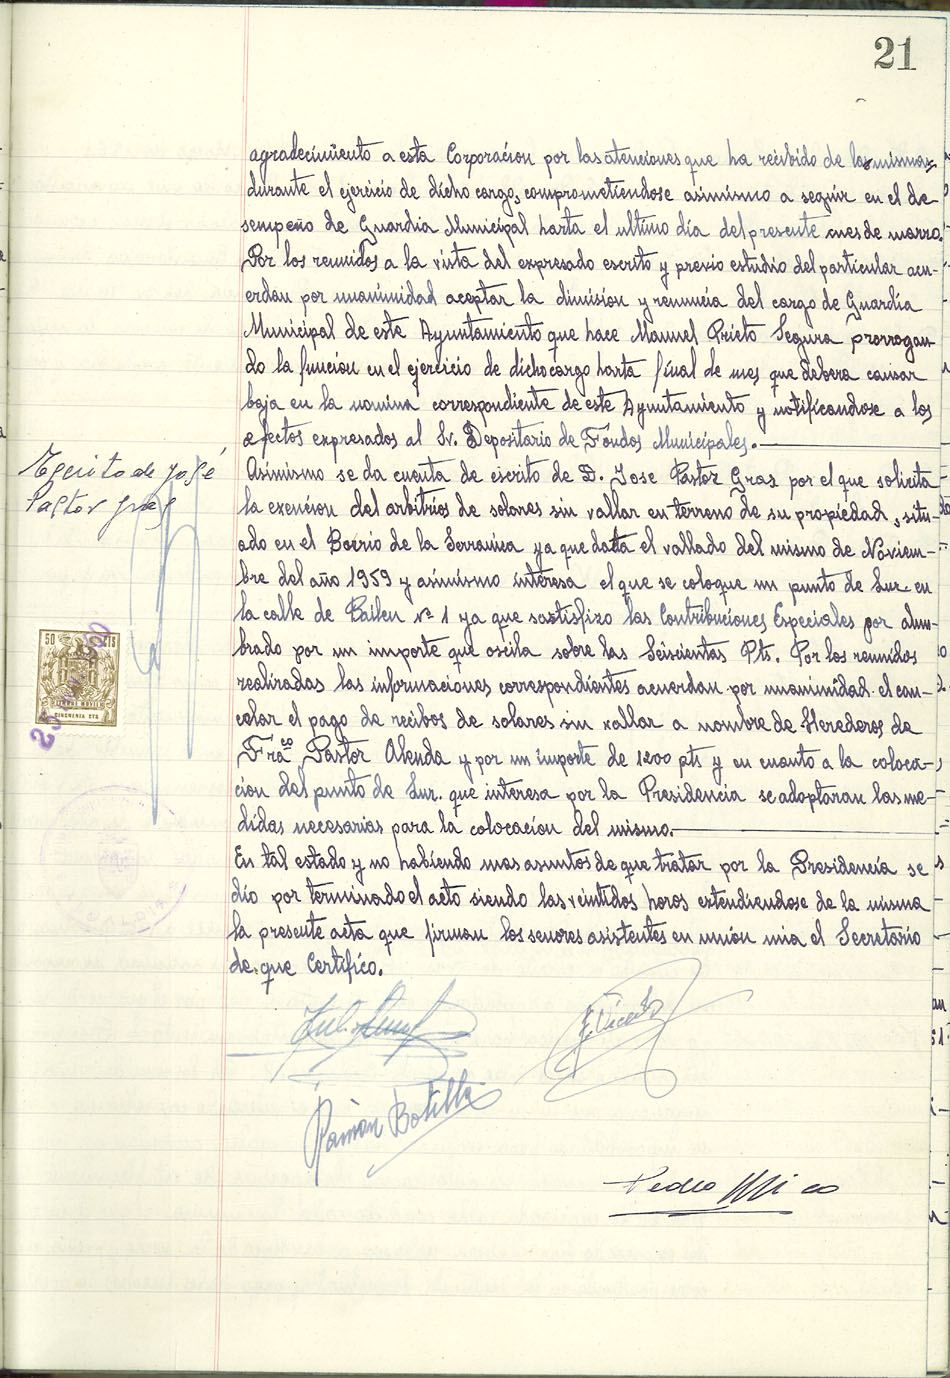 21
agradecimiento a esta Corporacion por las atenciones que ha recibido de los mismos
durante el ejercicio de dicho cargo, comprometiendose asimismo a seguir en el de-
sempeño de Guardia Municipal harta el ultimo día del presente mes de marzo.
Por los reunidos a la vista del expresado escrito y previo estudio del particular acu-
erdan por unanimidad aceptar la dimision y renuncia del cargo de Guardia
Municipal de este Ayuntamiento que hace Manuel Prieto Segura prorrogan-
do la funcion en el ejercicio de dicho cargo harta final de mes que debera causar
baja en la nomina correspondiente de este Ayuntamiento y notificandose a los
efectos expresados al Sr. Depositario de Fondos Municipales.
Escrito de José
Pastor Gras
Asimismo se da cuenta de escrito de D. Jose Pastor Gras por el que solicita
la exencion del arbitrios de solares sin vallar en terreno de su propiedad, situ-
ado en el Barrio de la Serranica ya que datta el vallado del mismo de Noviem-
bre del año 1959 y asimismo interesa el que se coloque un punto de Luz en
la calle de Bailen nº 1 ya que sastisfizo las Contribuciones Especiales por alum-
brado por un importe que oscila sobre las Seiscientas Pts. Por los reunidos
realizadas las informaciones correspondientes acuerdan por unanimidad el can-
celar el pago de recibos de solares sin vallar a nombre de Herederos de
Frac<sup>co</sup> Pastor Alenda y por un importe de 1200 pts y en cuanto a la coloca-
cion del punto de Luz que interesa por la Presidencia se adoptaran las me-
didas necesarias para la colocacion del mismo.
50 CTS
CINCUENTA CTS
ALCALDIA
En tal estado y no habiendo mas asuntos de que tratar por la Presidencia se
dio por terminado el acto siendo las veintidos horas extendiendose de la misma
la presente acta que firman los señores asistentes en union mia el Secretario
de que Certifico.
F. Vicente
Ramón Botella
Pedro Mico